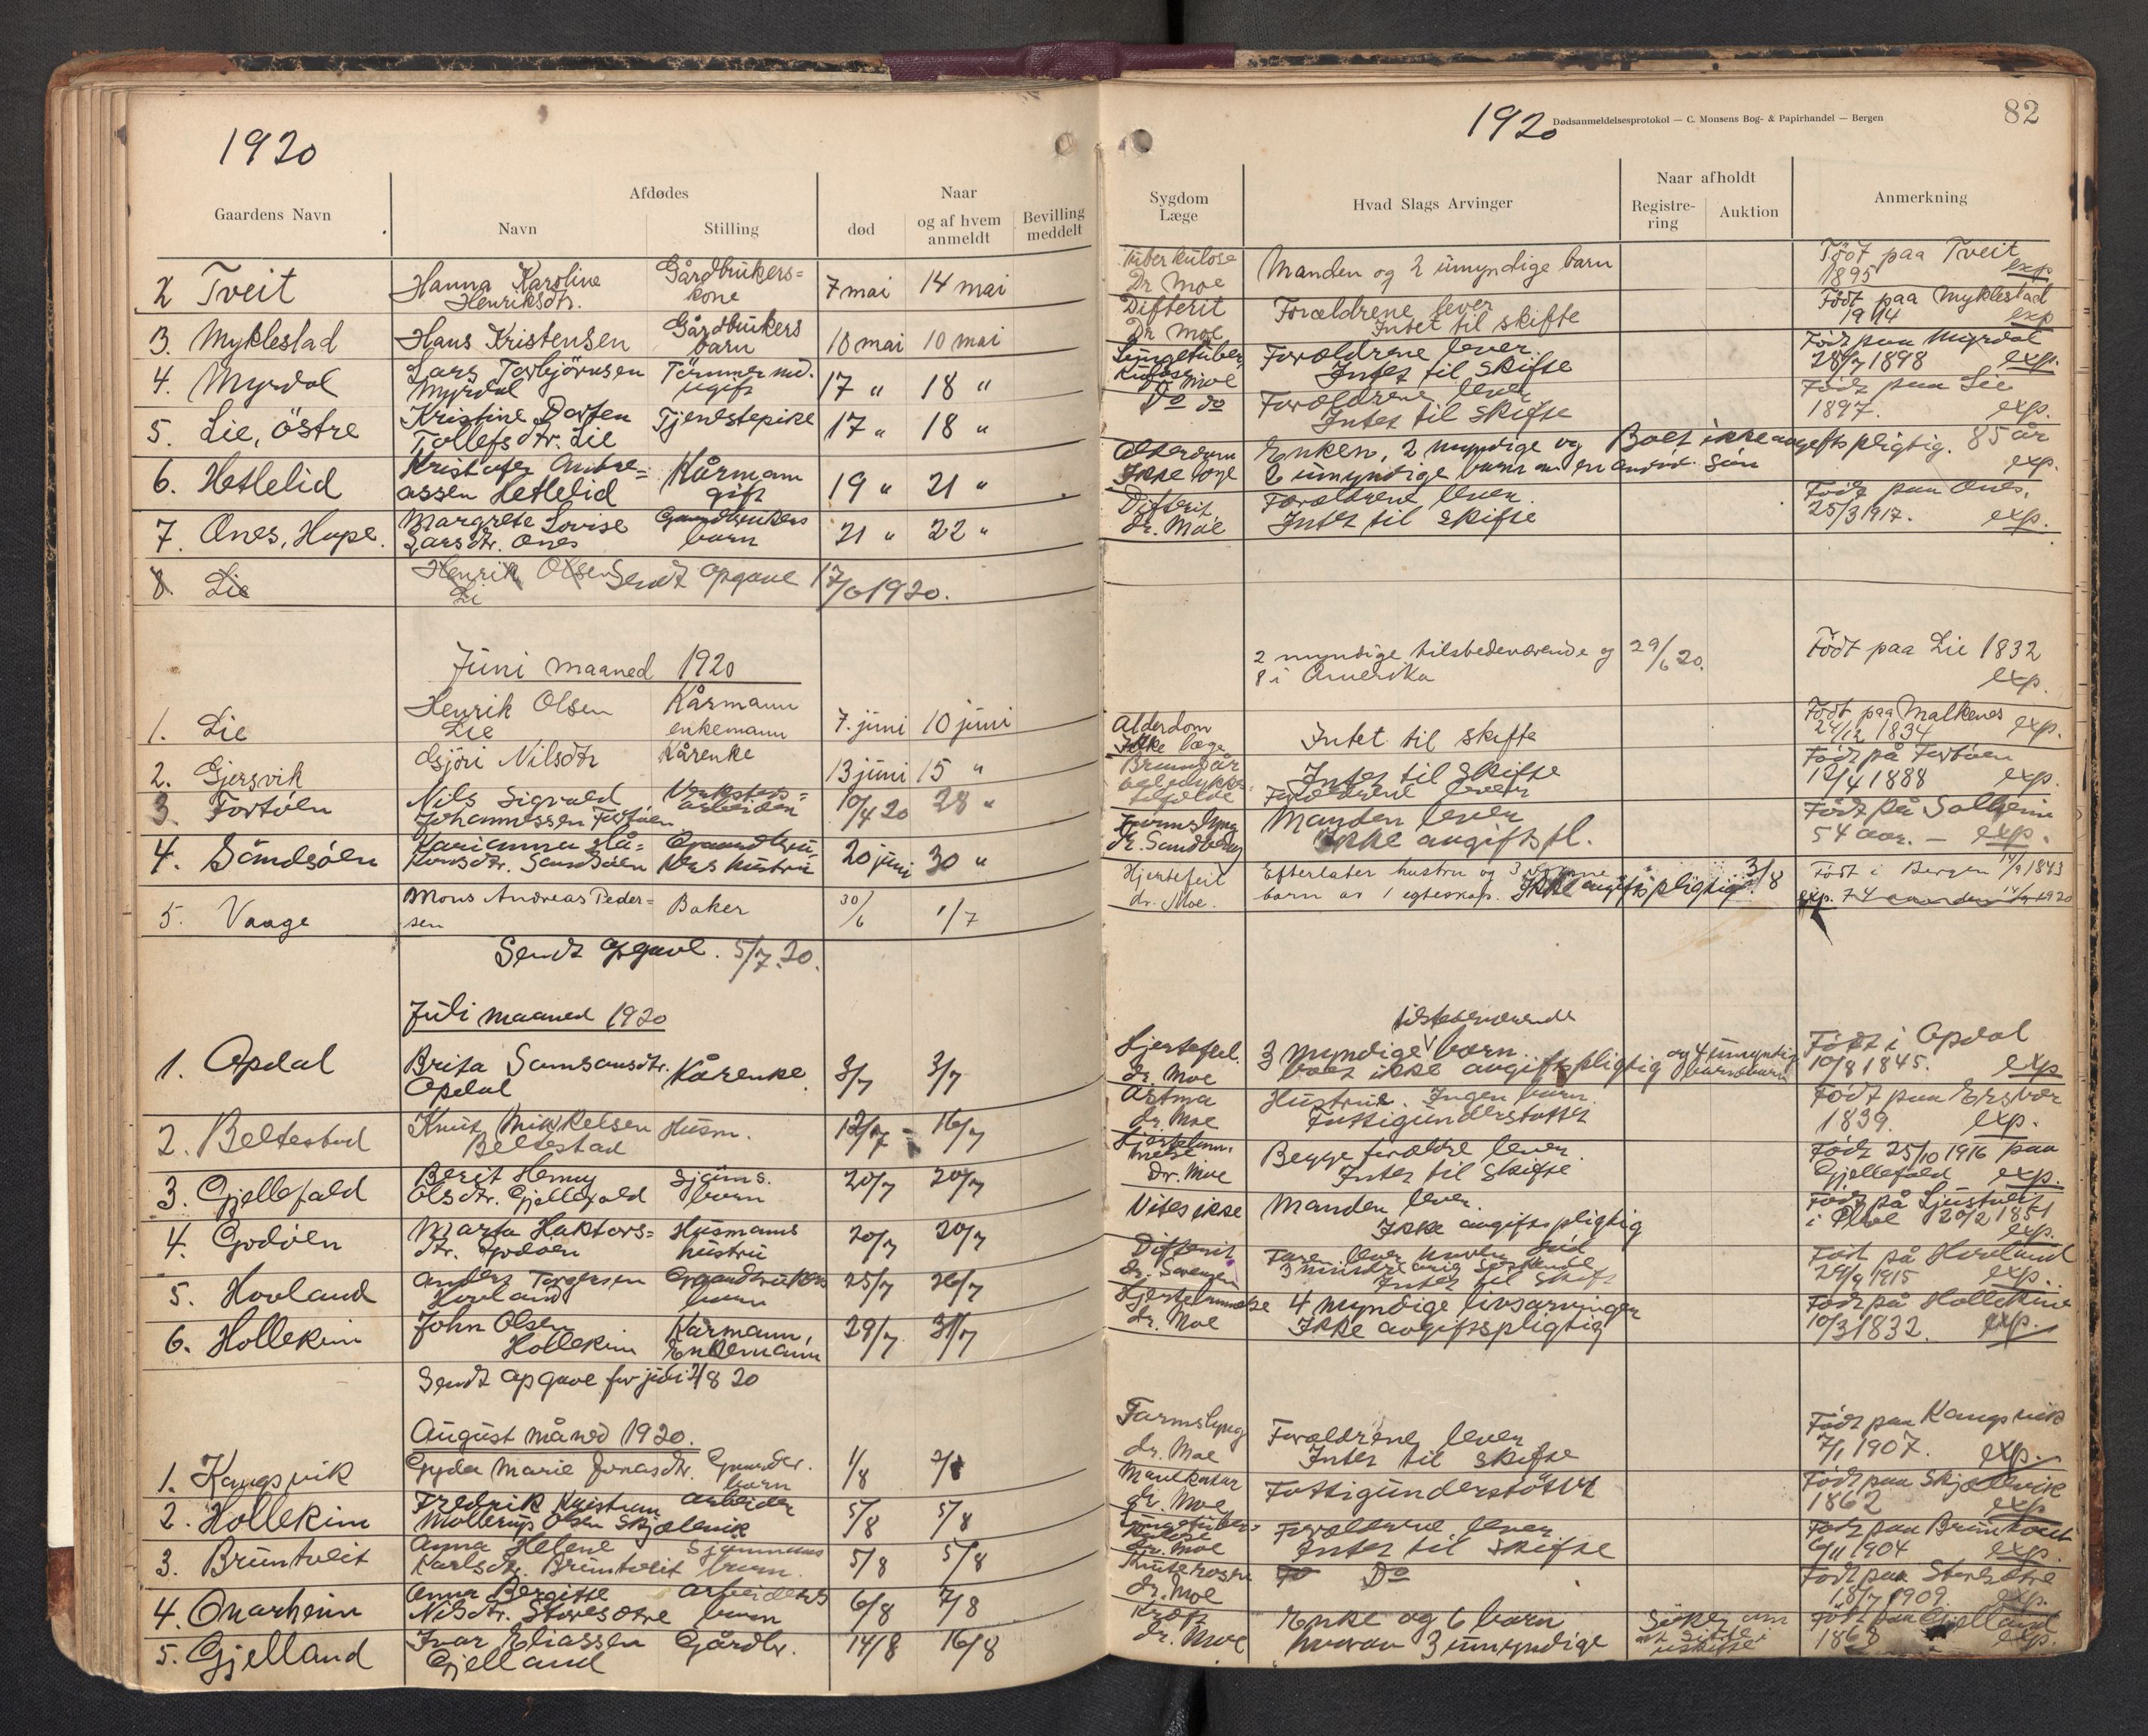 1920
Afdødes
Naar
Gaardens Navn
Navn
Stilling
død
og af hvem anmeldt
Bevilling meddelt
2 Tveit
Hanna Karoline
Henriksdtr.
Gårdbrukers=
kone
7 mai
14 mai
3. Myklestad
Hans Kristensen
Gårdbrukers
barn
10 mai
10 mai
4. Myrdal
Lars Torbjörnsen
Myrdal
Tömmermd.
ugift
17 "
18 "
5. Lie, östre
Kristine Dorten
Tollefsdtr. Lie
Tjenestepike
17 "
18 "
6. Hetlelid
Kristofer Andre=
assen Hetlelid
Kårmann
gift
19 "
21 "
7. Ones, Hope.
Margrete Lovise
Larsdtr. Ones
Gaardbrukers
barn
21 "
22 "
8 Lie
Henrik Olsen
Li
Sendt opgave
1920.
Juni maaned 1920
1. Lie
Henrik Olsen
Lie
Kårmann
enkemann
7. juni
10 juni
2. Gjersvik
Gjöri Nilsdtr
Kårenke
13 juni
15 "
3 Fortöen
Nils Sigvald
Johannessen Fortöen
Verksteds=
arbeider
10/4 20
28 "
4. Sandsöen
Karianna
Sandsöen
hustru
20 juni
30 "
5. Vaage
Mons Andreas Peder=
sen
Baker
30/6
1/7
Sendt opgave. 5/7.20.
Juli maaned 1920
1. Opdal
Brita Samsonsdtr.
Opdal
Kårenke
3/7
3/7
2. Beltestad
Knut Mikkelsen
Beltestad
Husm.
12/7
16/7
3. Gjellefald
Berit Henny
Olsdtr. Gjellefald
Sjöms.
barn
20/7
20/7
4. Godöen
Marta Haktors=
dtr. Godöen
Husmanns
hustru
20/7
20/7
5. Hovland
Anders Torgersen
Hovland
Gaardbrukers
barn
25/7
26/7
6. Hollekim
John Olsen
Hollekim
Kårmann,
Enkemann
29/7
31/7
Sendt opgave for juli 4/8 20
August måned 1920.
1. Kangsvik
Gyda Marie Jonasdtr.
Gaardbr.
barn
1/8
2. Hollekim
Fredrik Kristian
Mollerup Olsen Skjælevik
Arbeider
5/8
5/8
3. Bruntveit
Anna Helene
Karlsdtr. Bruntveit
Sjømanns
barn.
5/8
5/8
4. Onarheim
Anna Bergitte
Nilsdtr. Storesötre
Arbeiders
barn
6/8
7/8
5. Gjelland
Ivar Eliassen
Gjelland
Gårdbr.
14/8
16/8
1920
Dødsanmeldelsesprotokol — C. Monsens Bog- & Papirhandel — Bergen
82
Sygdom
Læge
Hvad Slags Arvinger
Naar afholdt
Registre-
ring
Auktion
Anmerkning
Tuberkulose
Dr Moe
Manden og 2 umyndige barn
Födt paa Tveit
1895
exp
Difterit
Dr. Moe
Forældrene lever
Intet til skifte
Födt paa Myklestad
1914
exp
Lungetuber
kulose
Dr Moe
Forældrene lever.
Intet til Skifte
Födt paa Myrdal
28/7 1898
exp.
Do do
Forældrene lever
Intet til Skifte
Födt paa Lie
1897.
exp.
Alderdom
Ikke læge
Enken, 2 myndige og
2 umyndige barn
Boet ikke avgiftspligtig. 85 år
exp.
Difterit
dr. Moe
Forældrene lever.
Intet til Skifte
Födt paa Ones.
25/3 1917.
exp.
2 myndige tilstedeværende og
8 i Amerika
29/6 20.
Födt paa Lie 1832
exp.
Alderdom
Ikke læge
Intet til skifte
Födt paa Malkenes
24/12 1834
exp.
Intet til Skifte
Forældrene lever
Födt på Fortöen
12/4 1888
exp.
Tarmslyng
dr. Sandberg
Manden lever
Ikke avgiftspl.
Födt på Solheim
54 aar. —
exp.
Hjertefeil
dr. Moe.
Efterlater hustru og 3 voksne
barn av 1 egteskap. Ikke avgiftspligtig.
3/8
Födt i Bergen 14/9 1843
exp.
Hjertefeil.
dr. Moe
tilstedeværende
3 myndige barn.
og 4 umyndig
barnebarn
boet ikke avgiftspligtig
Födt i Opdal
10/8 1845.
exp
Astma
dr. Moe
Hustrue. Ingen barn.
Fattigunderstöttet
Födt paa Ersvær
1839.
exp.
Dr. Moe
Begge forældre lever.
Intet til Skifte
Födt 25/10 1916 paa
Gjellefald
exp.
Vites ikke
Manden lever.
Ikke avgiftspligtig
Födt på
20/2 1851
exp.
Difterit
dr. Sörensen
Faren lever moren död
3 mindreårig söskende
Intet til Skifte
Födt på Hovland
24/9 1915
exp.
dr. Moe
4 myndige livsarvinger
Ikke avgiftspligtig
Födt på Hollekim
10/3 1832.
exp.
Tarmslyng
dr. Moe
Forældrene lever
Intet til Skifte
Födt paa Kangsvik
7/1 1907.
exp.
dr. Moe
Fattigunderstöttet
Födt paa Skjælevik
1862
exp
Lungetuber=
kulose
dr. Moe
Forældrene lever
Intet til Skifte
Födt paa Bruntveit
6/11 1904
exp.
dr. Moe
Do
Födt paa Storesötre
18/7 1909.
exp.
Kræft
dr. Moe
Enke og 6 barn
hvorav 3 umyndige
Söker om
at sitte i
uskifte
Födt paa Gjelland
1868
exp.